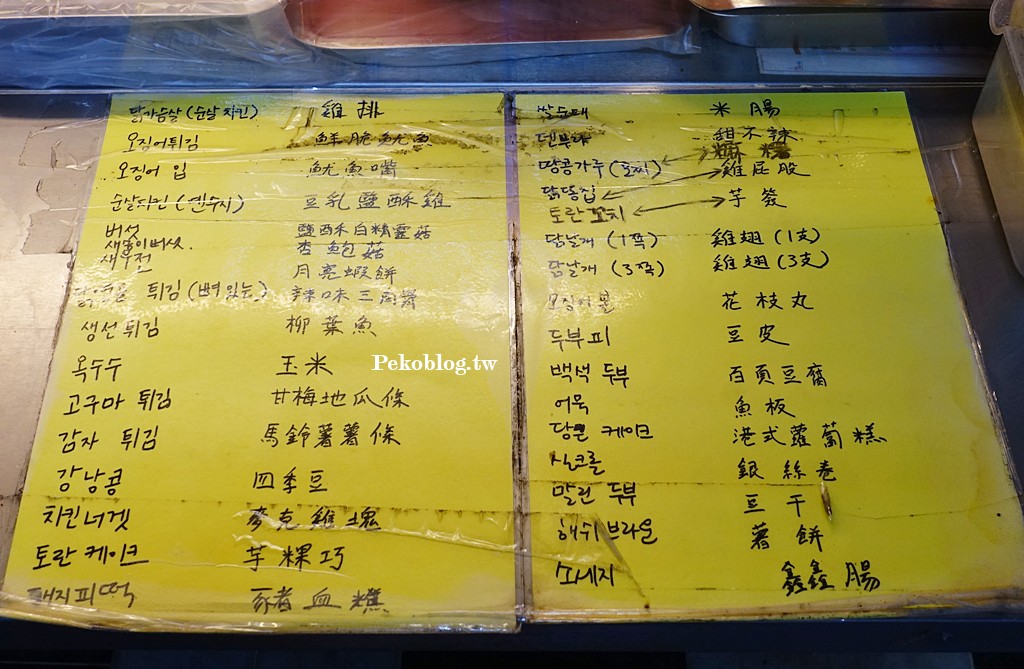 닭가슴살 (순살 치킨) 雞排
오징어튀김 鮮脆魷魚
오징어 입 魷魚嘴
순살치킨 (옌수지) 豆乳鹽酥雞
버섯 鹽酥白精靈菇
새송이버섯 杏鮑菇
새우전 月亮蝦餅
튀김 (뼈있는) 辣味三角骨
생선 튀김 柳葉魚
옥수수 玉米
고구마 튀김 甘梅地瓜條
감자 튀김 馬鈴薯薯條
강낭콩 四季豆
치킨너겟 麥克雞塊
토란 케이크 芋粿巧
돼지피떡 豬血糕
쌀순대 米腸
덴부라 甜不辣
땅콩가루 (모찌) 麻糬
닭똥집 雞屁股
토란 꼬치 芋簽
닭날개 (1쪽) 雞翅 (1支)
닭날개 (3쪽) 雞翅 (3支)
오징어볼 花枝丸
두부피 豆皮
백색 두부 百頁豆腐
어묵 魚板
당근 케이크 港式蘿蔔糕
실크롤 銀絲卷
말린 두부 豆干
해쉬브라운 薯餅
소세지 鑫鑫腸
Pekoblog.tw